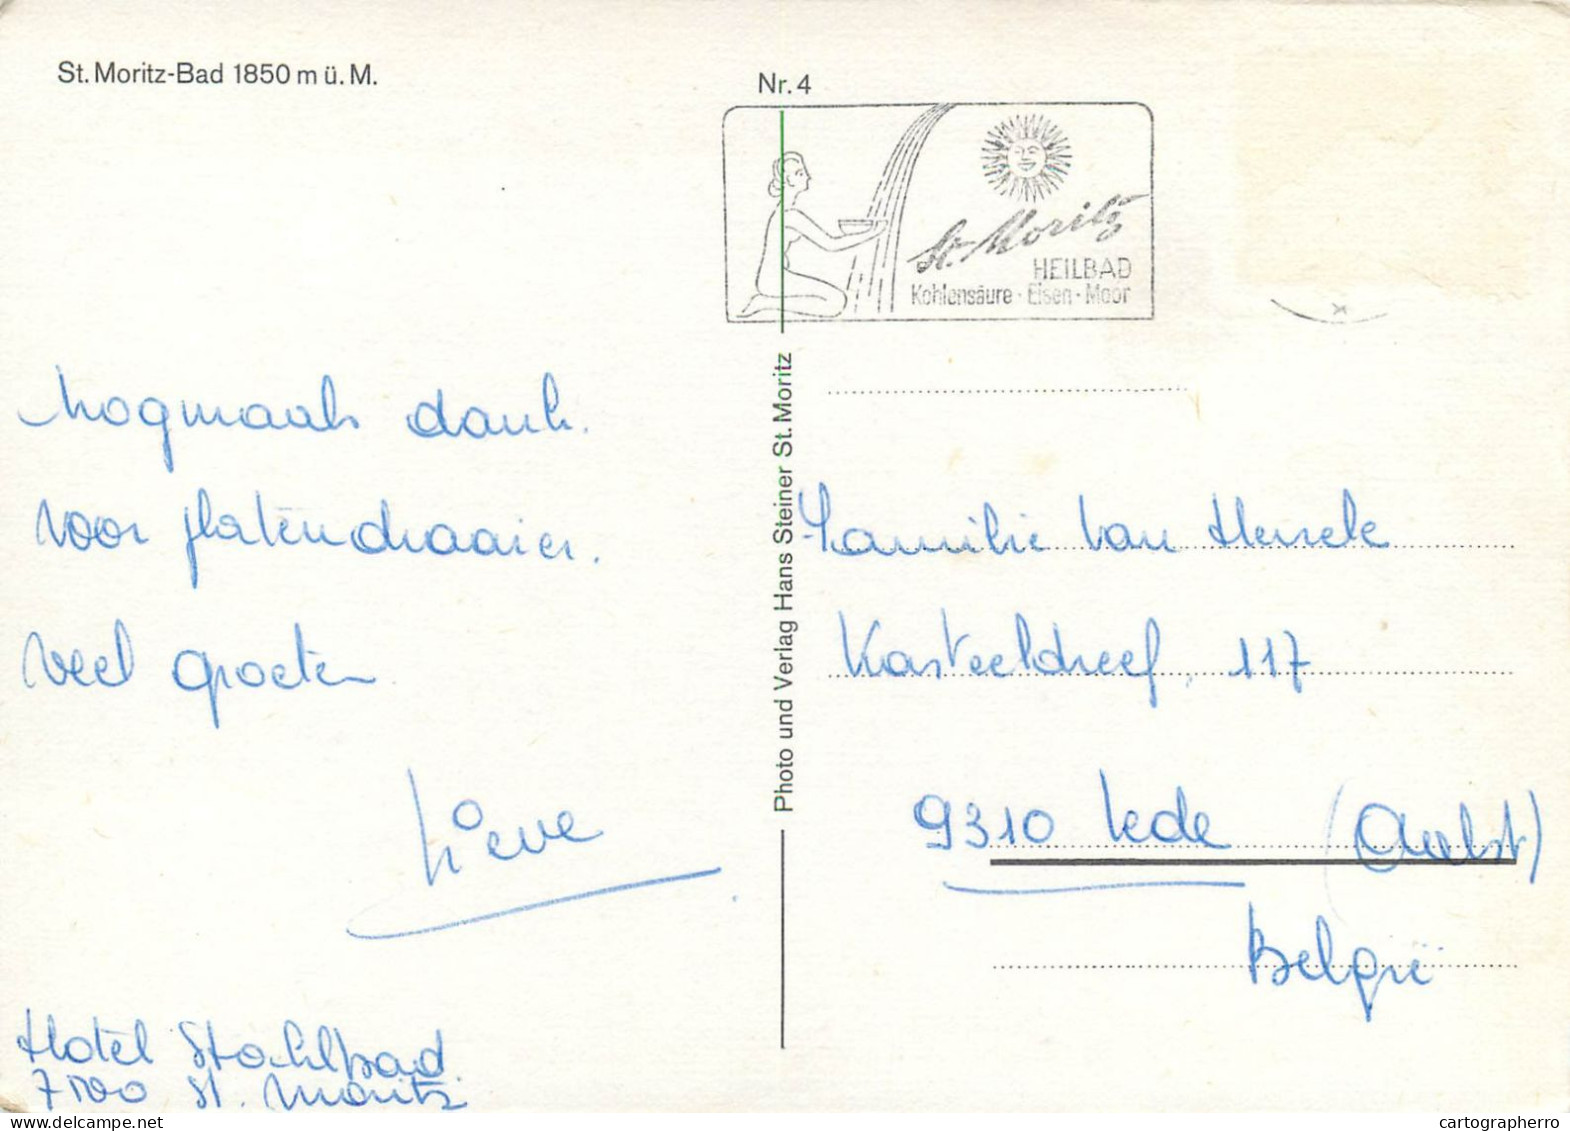 St. Moritz-Bad 1850 m ü. M.
Nr. 4
St. Moritz
HEILBAD
Kohlensäure · Eisen · Moor
Nogmaals dank.
voor platendraaier.
Veel groeten
Lieve
Hotel Stahlbad
7500 St. Moritz
Photo und Verlag Hans Steiner St. Moritz
Familie Van
Kasteeldreef, 117
9310 Lede (Aalst)
België
www.delcampe.net
cartographerro